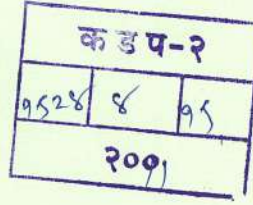 क ड प-२
१५२४ ४ १५
२०११